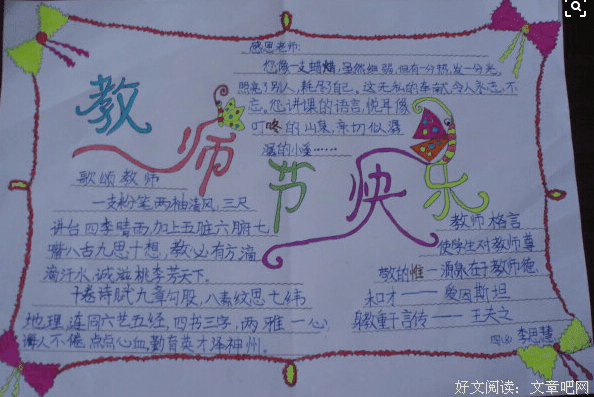 教师节快乐
感恩老师:
您像一支蜡烛,虽然细弱,但有一分热,发一分光,
照亮了别人,耗尽了自己。这无私的奉献,令人永志不
忘。您讲课的语言,悦耳像
叮咚的山泉,亲切似潺
潺的小溪……
歌颂教师
一支粉笔两袖清风,三尺
讲台四季晴雨,加上五脏六腑七
嘴八古九思十想,教必有方滴
滴汗水,诚滋桃李芳天下。
十卷诗赋九章勾股,八索纹思七纬
地理,连同六艺五经,四书三字,两雅一心
诲人不倦,点点心血,勤育英才泽神州。
教师格言
使学生对教师尊
敬的惟一源泉在于教师德
和才——爱因斯坦
身教重于言传——王夫之
李思慧
好文阅读:文章吧网